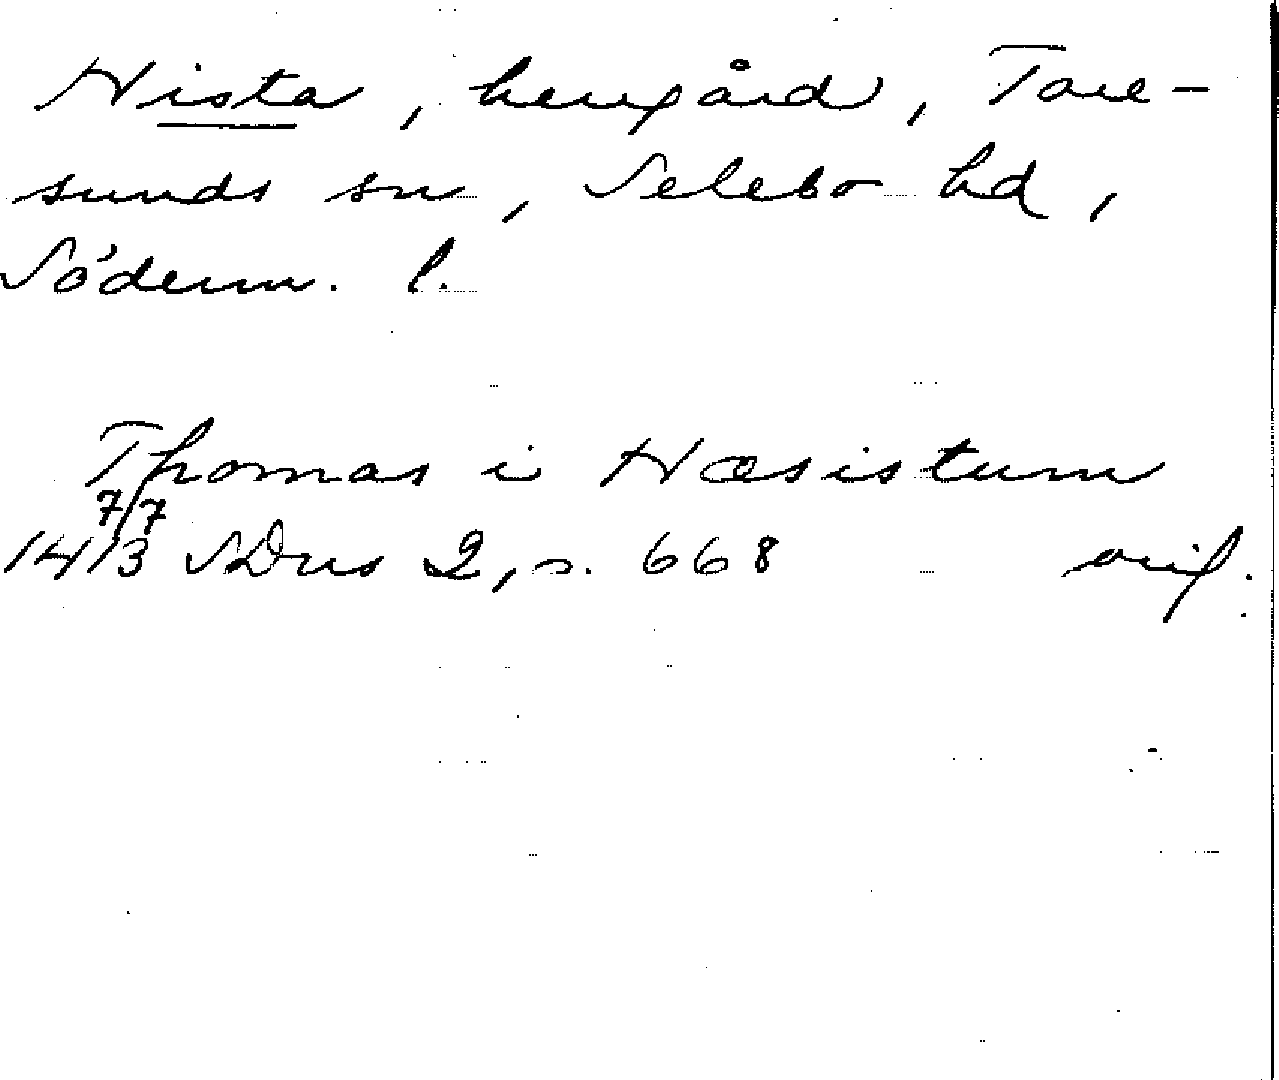 Hista, herrgård, Tore-
sunds sn, Selebo hd,
Söderm. l.
Thomas i Hæsistum
7/7
1413 SDns 2, s. 668 orig.